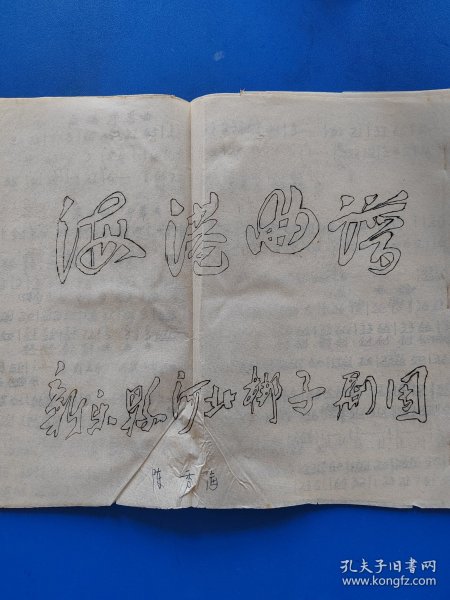 海港曲谱
新乐县河北梆子剧团
陈秀
孔夫子旧书网
www.kongfz.com